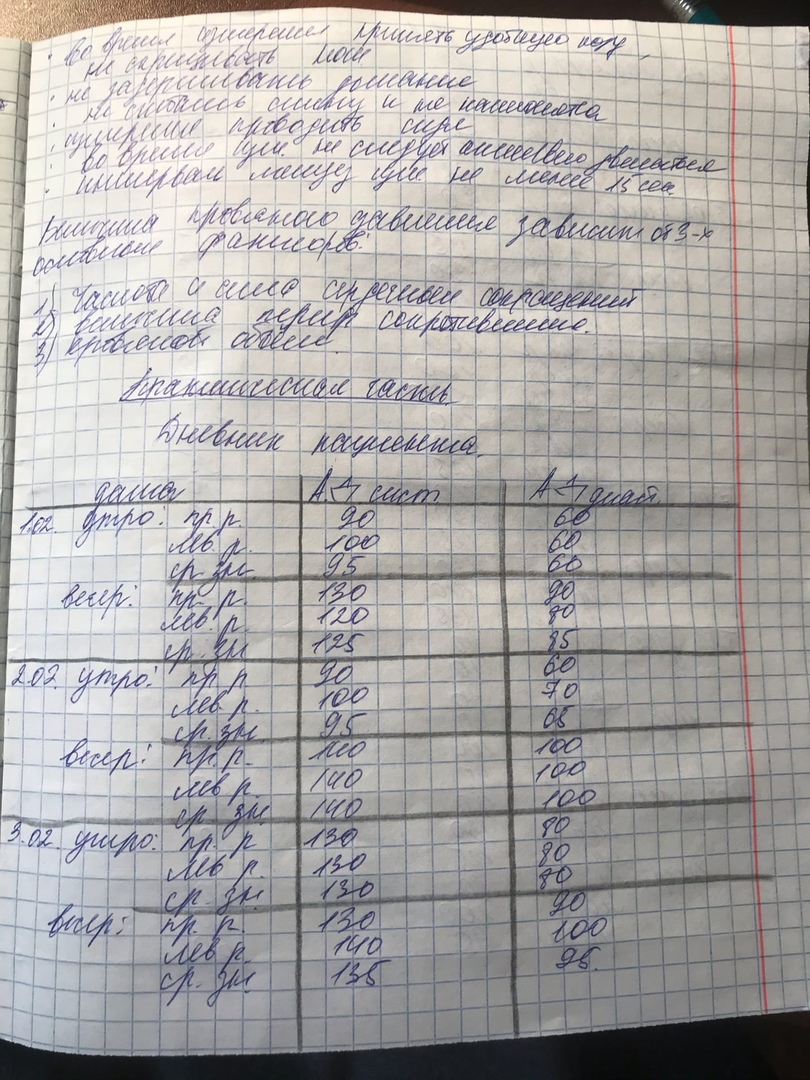 · Во время измерения принять удобную позу,
не скрещивать ноги
· не задерживать дыхание
· не сгибать спину и не наклоняться
· измерение проводить сидя
· во время изм. не следует активно двигаться
· интервал между изм. не менее 15 сек.
Величина кровяного давления зависит от 3-х
основных факторов:
1) Частота и сила сердечных сокращений
2) величина периф. сопротивления.
3) кровяной объем.
Практическая часть.
Дневник пациента.
дата АД сист АД диаст.
1.02. утро: пр р. 90 60
лев р. 100 60
ср зн. 95 60
вечер: пр. р. 130 90
лев. р. 120 80
ср. зн. 125 85
2.02. утро: пр р 90 60
лев р. 100 70
ср. зн. 95 65
вечер: пр. р. 140 100
лев р. 140 100
ср. зн. 140 100
3.02. утро: пр. р 130 80
лев р. 130 80
ср. зн. 130 80
вечер: пр. р. 130 90
лев р. 140 100
ср. зн. 135 95.